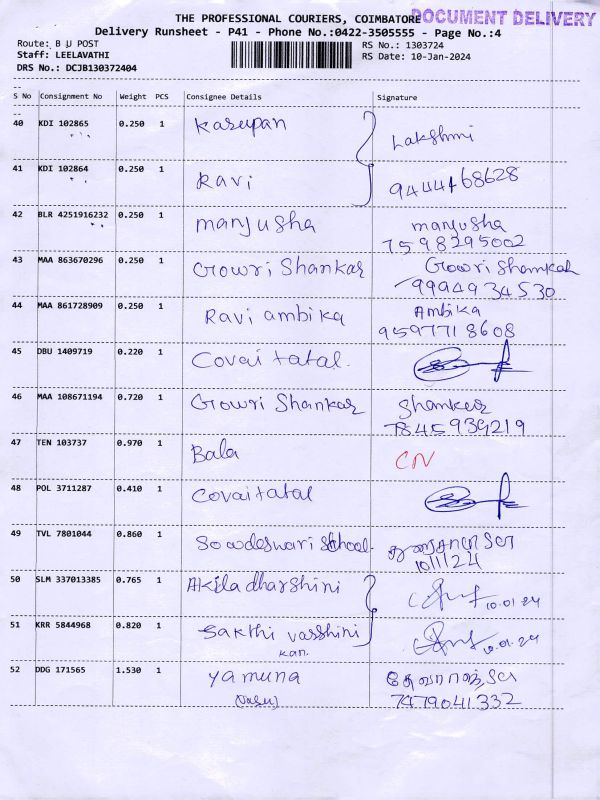 THE PROFESSIONAL COURIERS, COIMBATORE DOCUMENT DELIVERY
Delivery Runsheet - P41 - Phone No.:0422-3505555 - Page No.:4
Route: B U POST
RS No.: 1303724
Staff: LEELAVATHI
RS Date: 10-Jan-2024
DRS No.: DCJB130372404
S No Consignment No Weight PCS Consignee Details Signature
40 KDI 102865 0.250 1 Karupan
Lakshmi
41 KDI 102864 0.250 1 Ravi
9444468628
42 BLR 4251916232 0.250 1 manjusha manjusha
7598295002
43 MAA 863670296 0.250 1 Gowri Shankar Gowri Shankar
9994934530
44 MAA 861728909 0.250 1 Ravi ambika Ambika
9597718608
45 DBU 1409719 0.220 1 Covai tatal.
46 MAA 108671194 0.720 1 Gowri Shankar Shankar
7845939219
47 TEN 103737 0.970 1 Bala CN
48 POL 3711287 0.410 1 Covai tatal
49 TVL 7801044 0.860 1 Sowdeswari School.
10/1/24
50 SLM 337013385 0.765 1 Akila dharshini
10.01.24
51 KRR 5844968 0.820 1 Sakthi varshini
kan.
10.01.24
52 DDG 171565 1.530 1 yamuna
7479041332